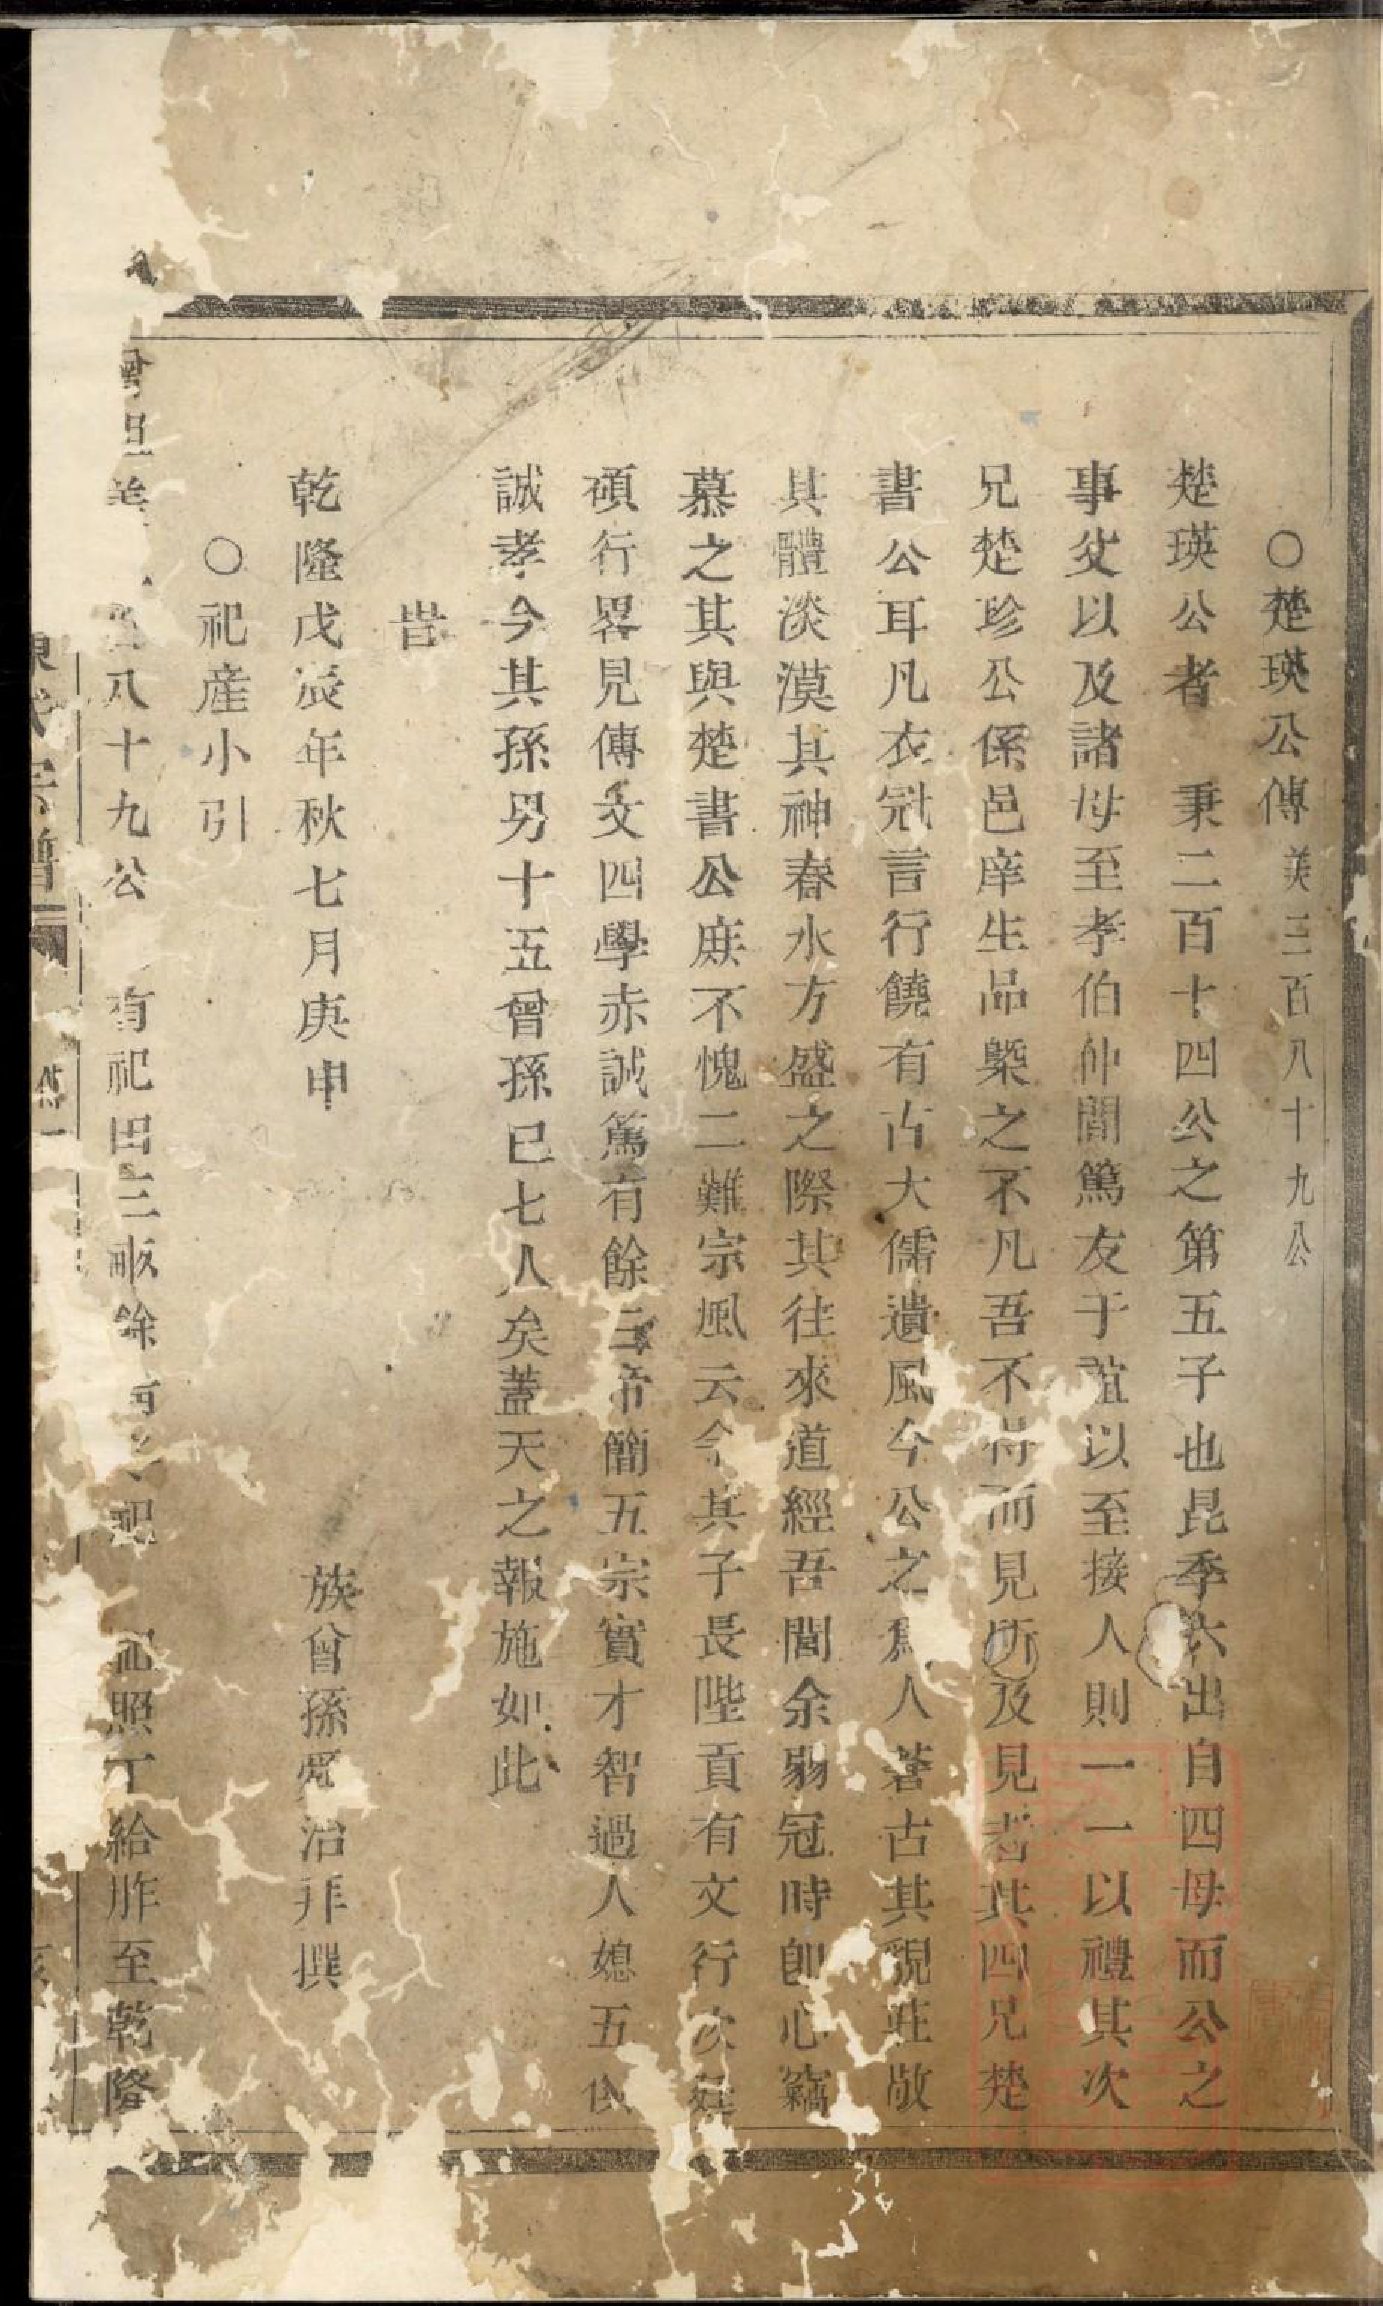 ○楚瑛公傳美三百八十九公
楚瑛公者 秉二百十四公之第五子也昆季六出自四母而公之
事父以及諸母至孝伯仲間篤友于誼以至接人則一一以禮其次
兄楚珍公係邑庠生品槩之不凡吾不得而見所及見者其四兄楚
書公耳凡衣冠言行饒有古大儒遺風今公之爲人蒼古其貌莊敬
其體淡漠其神春水方盛之際其往來道經吾閭余弱冠時卽心竊
慕之其與楚書公庶不愧二難宗風云今其子長陛貢有文行次廷
碩行畧見傳文四學赤誠篤有餘三帝簡五宗實才智過人媳五俱
誠孝今其孫男十五曾孫已七人矣蓋天之報施如此
旹
乾隆戊辰年秋七月庚申 族曾孫爕治拜撰
○祀産小引
八十九公 有祀田三畝餘 祀 祀照丁給胙至乾隆
氏宗譜